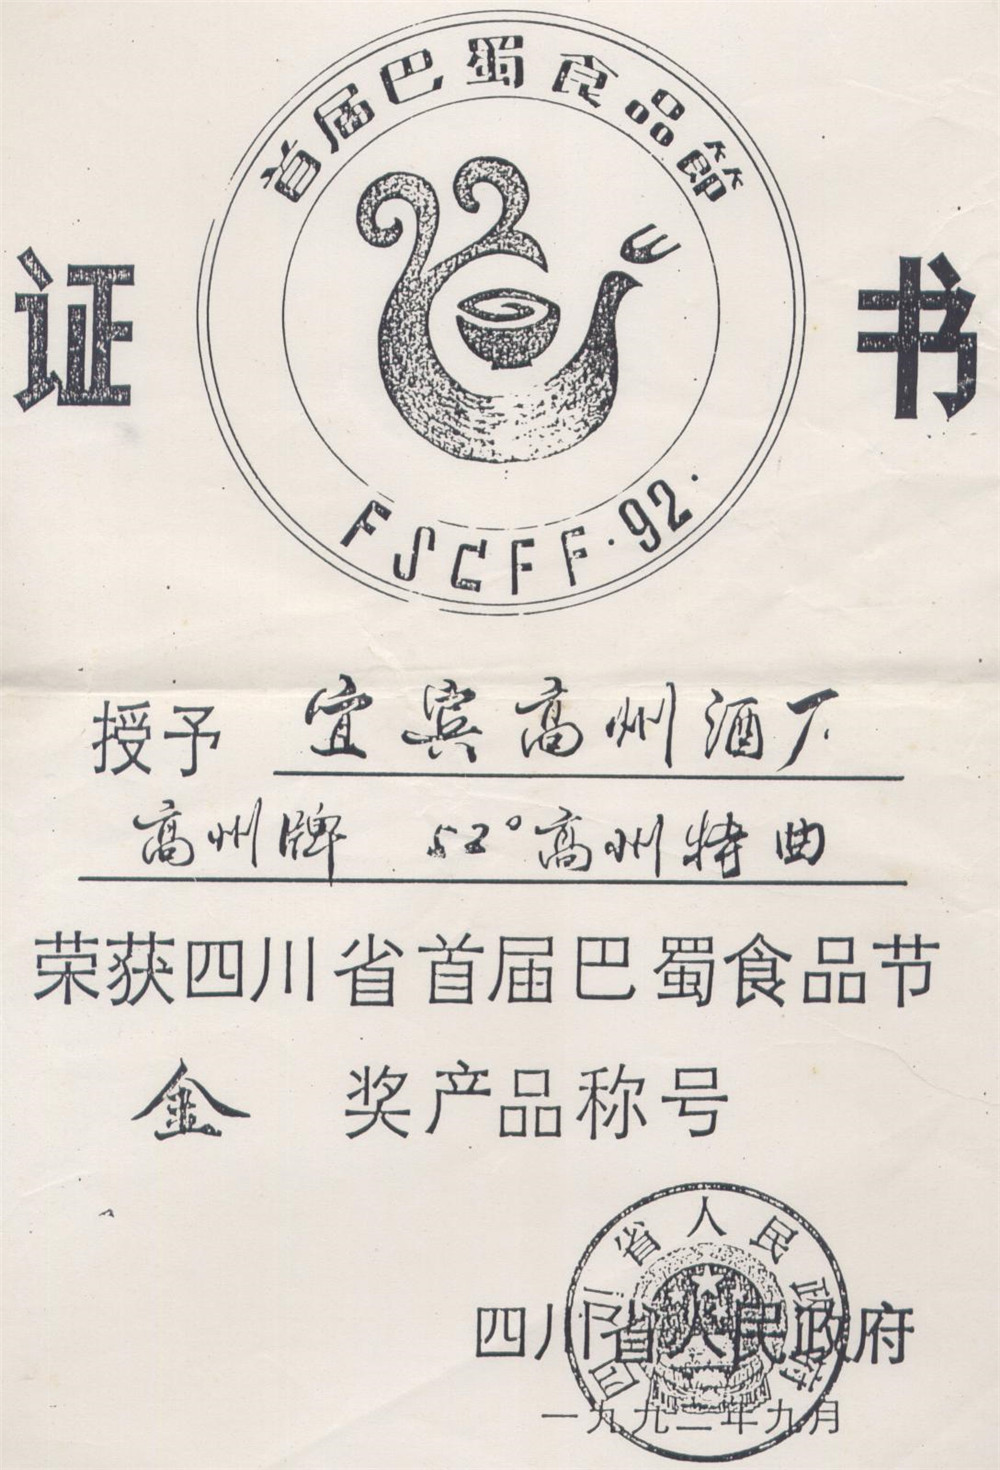 首届巴蜀食品節
证 书
FSCFF·92·
授予 宜宾高州酒厂
高州牌 52°高州特曲
荣获四川省首届巴蜀食品节
金 奖产品称号
四川省人民政府
四川省人民政府
一九九二年九月